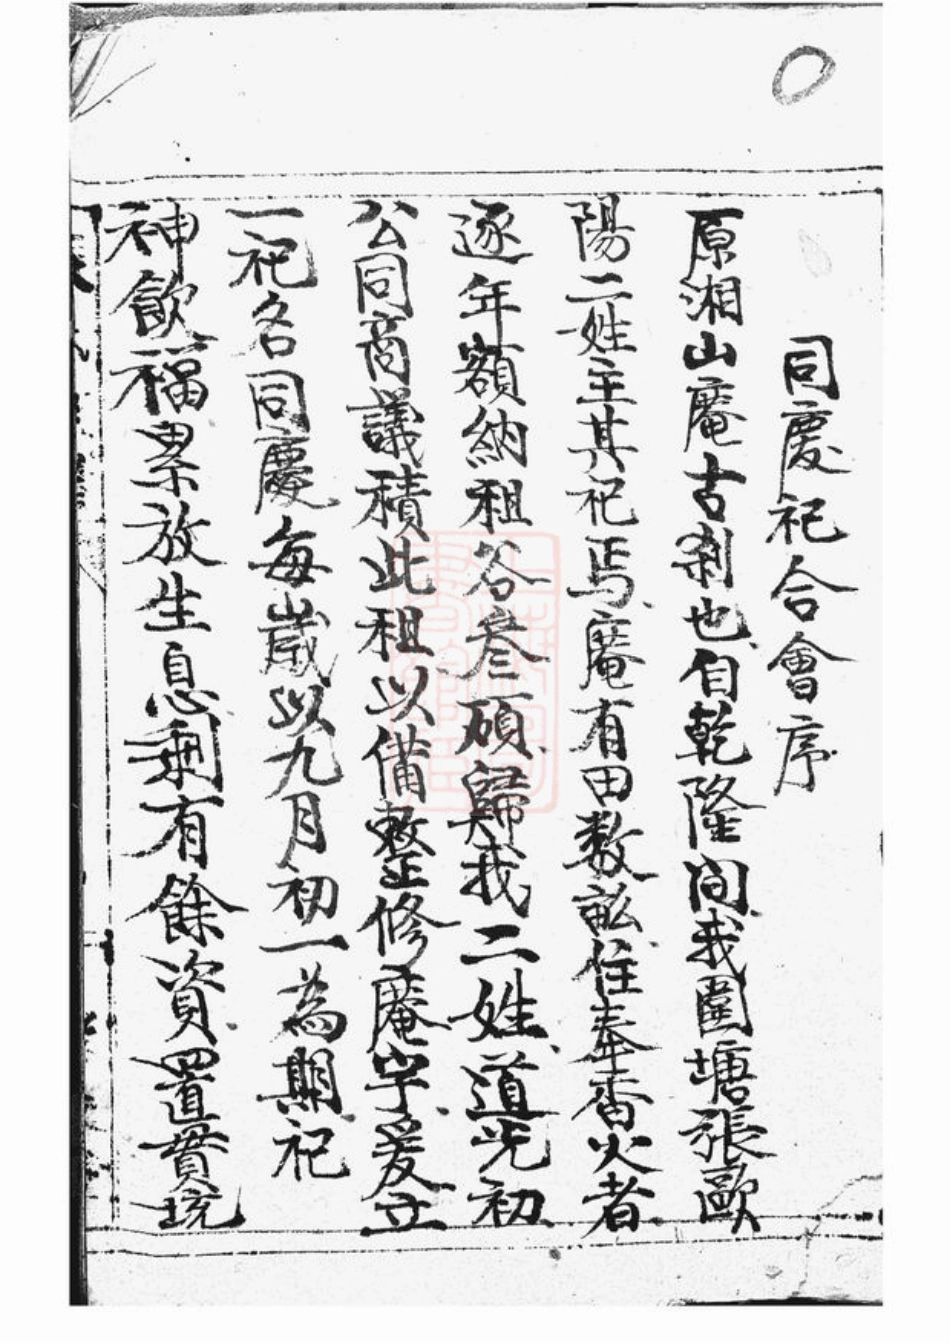 同慶祀合會序
原湘山庵古刹也自乾隆间我圍塘張歐
陽二姓主其祀焉庵有田数畝住奉香火者
逐年額納租谷叁碩歸我二姓道光初
公同商議積此租以備整修庵宇爰立
一祀名同慶每歲以九月初一為期祀
神飲福累放生息剩有餘資置貫坑